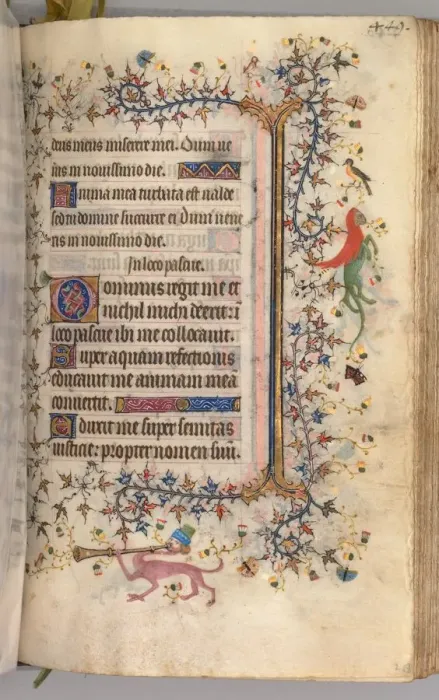 deus meus miserere mei. Dum ve
nis in novissimo die.
Anima mea turbata est valde
sed domine succurre ei Dum vene
ris in novissimo die.
In loco pascue.
Dominus regit me et
nichil michi deerit: i
loco pascue ibi me collocavit.
Super aquam refectionis
educavit me animam mea
convertit.
Eduxit me super semitas
iusticie: propter nomen suu.